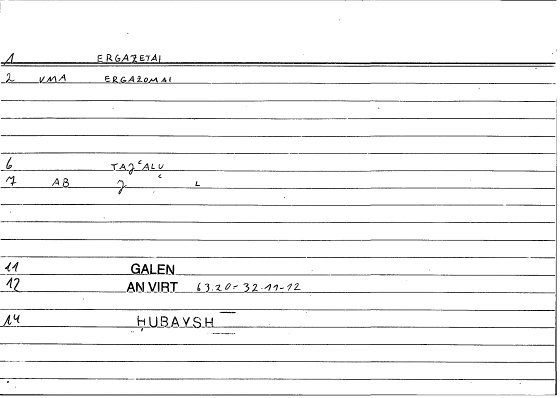 1 ERGAZETAI
2 VMA ERGAZOMAI
6 TAʒʿALU
7 AB ʒ ʿ L
11 GALEN
12 AN VIRT 63.20-32.11-12
14 ḤUBAYSH